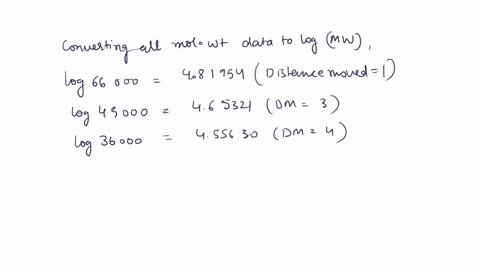 Converting all mol. wt data to log (MW),
log 66 000 = 4.81954 (Distance moved = 1)
log 45000 = 4.65321 (DM = 3)
log 36000 = 4.55630 (DM = 4)